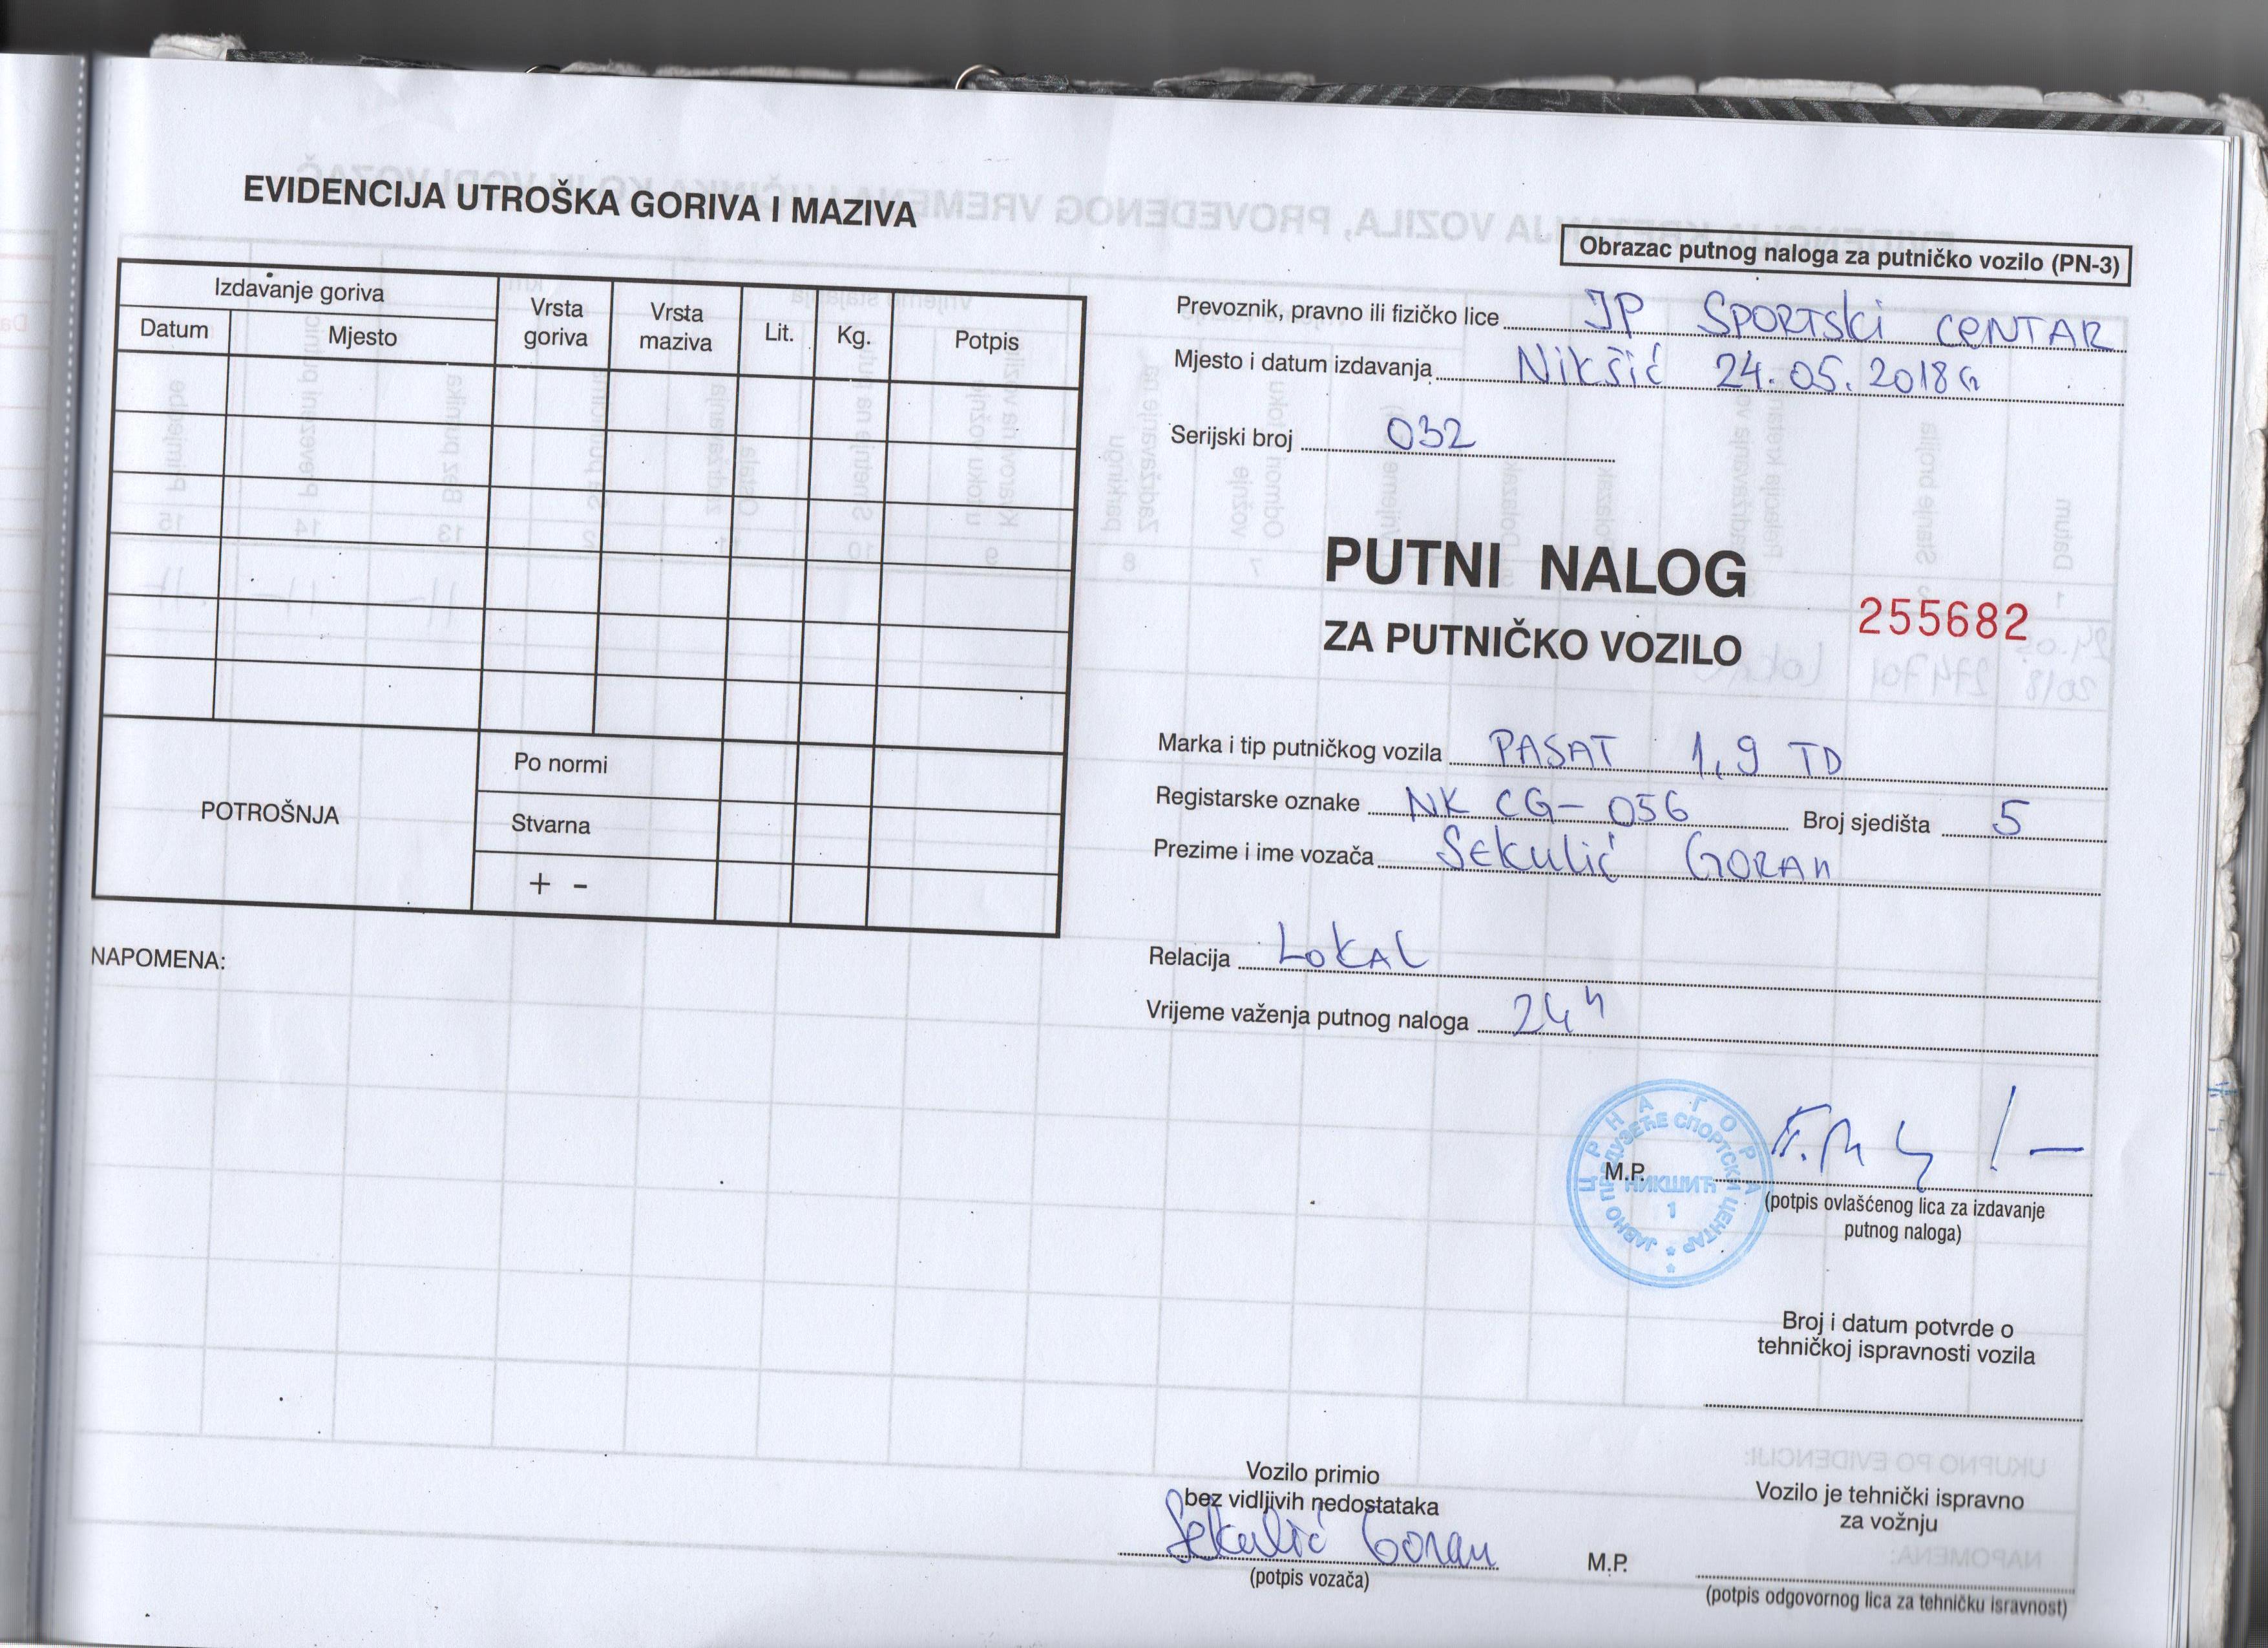 EVIDENCIJA UTROŠKA GORIVA I MAZIVA
Izdavanje goriva
Datum
Mjesto
Vrsta goriva
Vrsta maziva
Lit.
Kg.
Potpis
POTROŠNJA
Po normi
Stvarna
+ -
NAPOMENA:
Obrazac putnog naloga za putničko vozilo (PN-3)
Prevoznik, pravno ili fizičko lice JP SPORTSKI CENTAR
Mjesto i datum izdavanja Nikšić 24.05.2018 G
Serijski broj 032
PUTNI NALOG
255682
ZA PUTNIČKO VOZILO
Marka i tip putničkog vozila PASAT 1,9 TD
Registarske oznake NK CG-056 Broj sjedišta 5
Prezime i ime vozača SEKULIĆ GORAN
Relacija LOKAL
Vrijeme važenja putnog naloga 24 h
ЦРНА ГОРА
ЈАВНО ПРЕДУЗЕЋЕ СПОРТСКИ ЦЕНТАР
НИКШИЋ
1
M.P.
(potpis ovlašćenog lica za izdavanje
putnog naloga)
Broj i datum potvrde o
tehničkoj ispravnosti vozila
Vozilo primio
bez vidljivih nedostataka
Sekulić Goran
(potpis vozača)
Vozilo je tehnički ispravno
za vožnju
M.P.
(potpis odgovornog lica za tehničku isravnost)